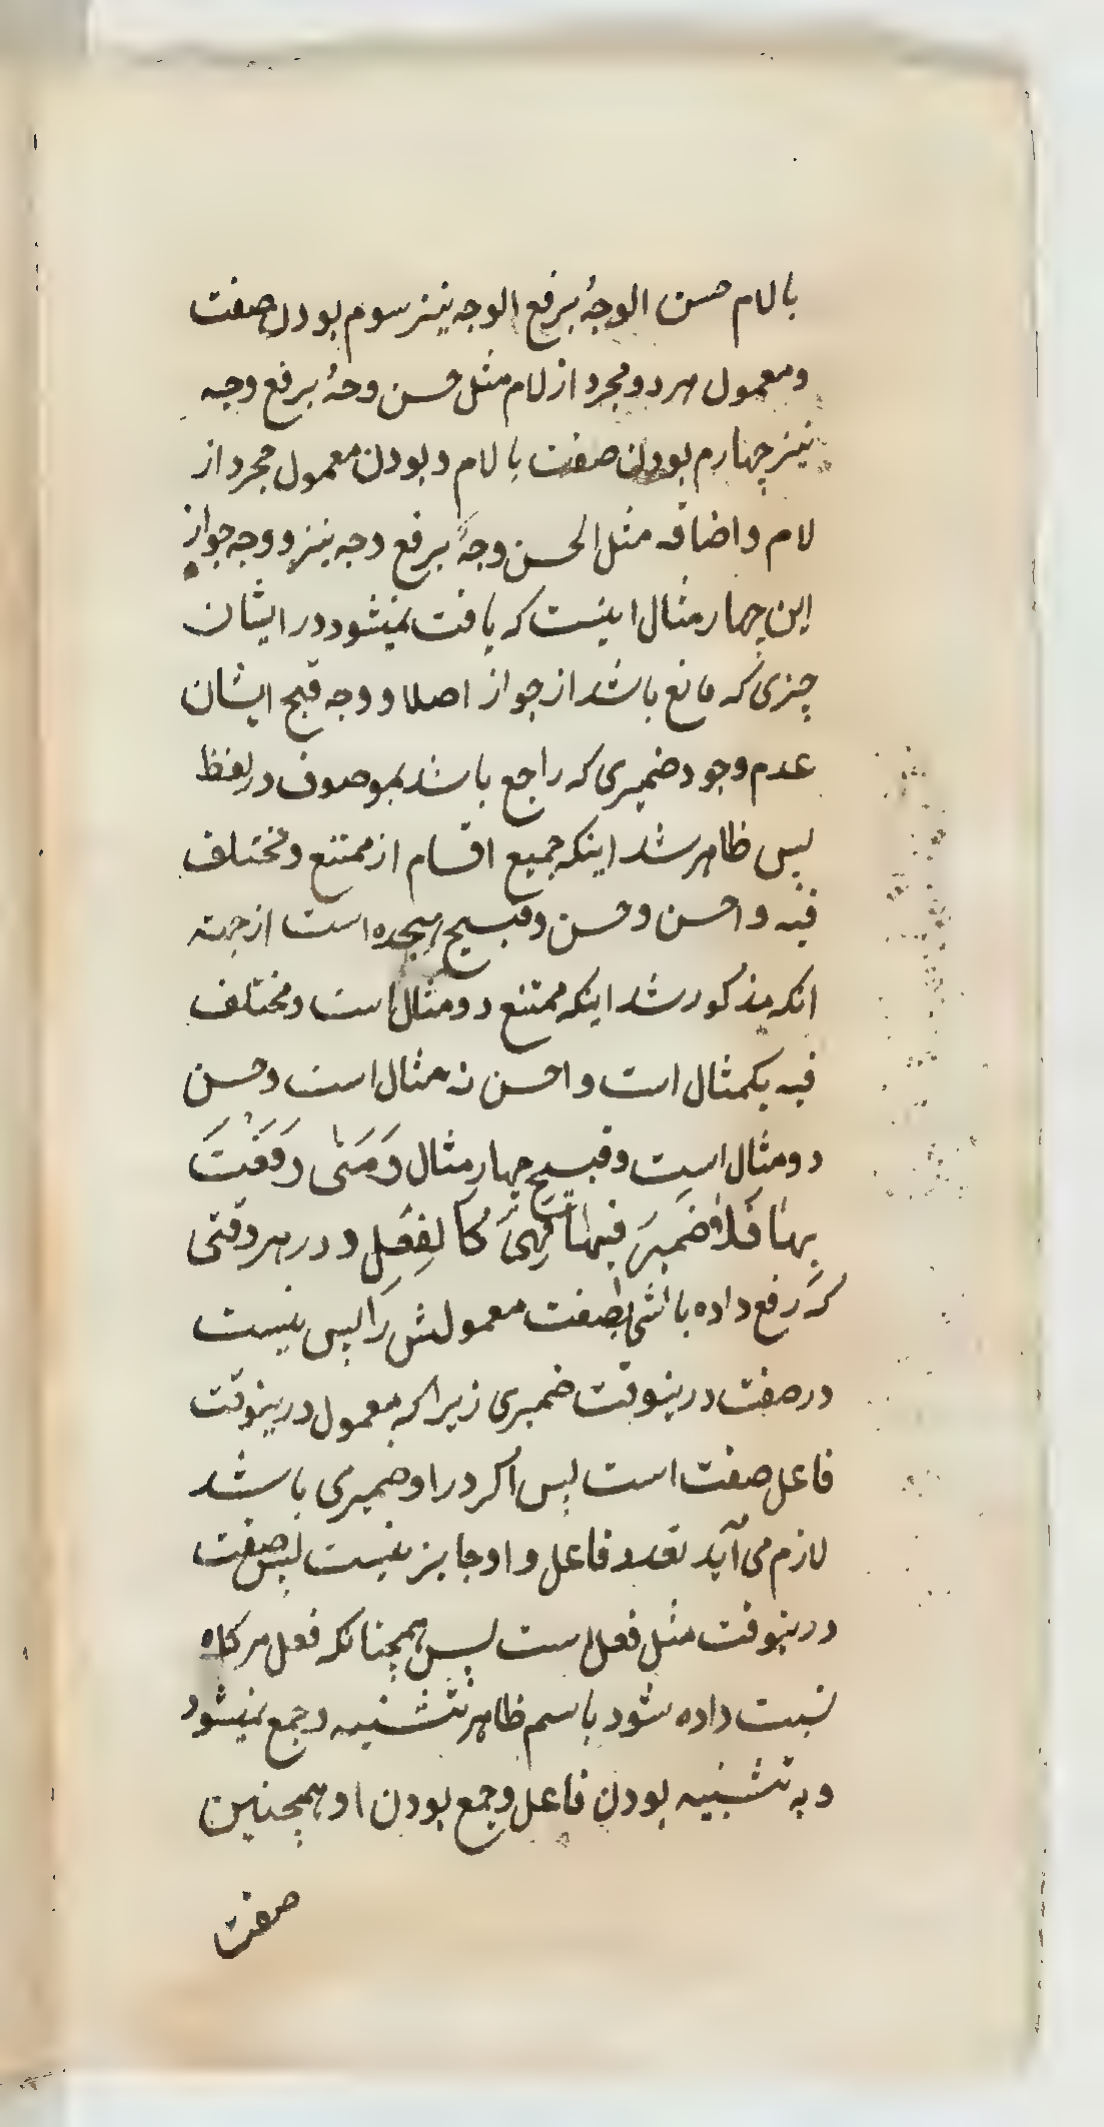 بالام حسن الوجهُ برفع الوجه نیز سوم بودن صفت
و معمول هر دو مجرد از لام مثل حسن وجهٌ برفع وجه
نیز چهارم بودن صفت بالام و بودن معمول مجرد از
لام و اضافه مثل الحسن وجهٌ برفع وجه نیز و وجه جواز
این چهار مثال اینست که یافت نمیشود در ایشان
چیزی که مانع باشد از جواز اصلا و وجه قبح ایشان
عدم وجود ضمیری که راجع باشد بموصوف در لفظ
پس ظاهر شد اینکه جمیع اقسام از ممتنع و مختلف
فیه و احسن و حسن و قبیح هیجده است از جهته
انکه مذکور شد اینکه ممتنع دو مثال است و مختلف
فیه یکمثال است و احسن نه مثال است و حسن
دو مثال است و قبیح چهار مثال وَمَتٰی رَفَعْتَ
بِهٰا فَلاٰ ضَمیرَ فیهٰا فَهِیَ کَالفِعْلِ و در هر وقتی
که رفع داده باشی بصفت معمولش را پس نیست
در صفت درینوقت ضمیری زیرا که معمول درینوقت
فاعل صفت است پس اکر در او ضمیری باشد
لازم می آید تعدد فاعل و او جایز نیست پس صفت
درینوقت مثل فعل است پس همچنانکه فعل هرکاه
نسبت داده شود باسم ظاهر تثنیه و جمع نمیشود
و به تثنیه بودن فاعل و جمع بودن او همچنین
صفت